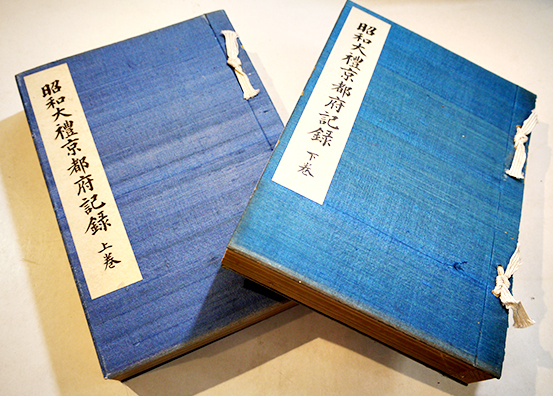 昭和大禮京都府記録 上巻
昭和大禮京都府記録 下巻